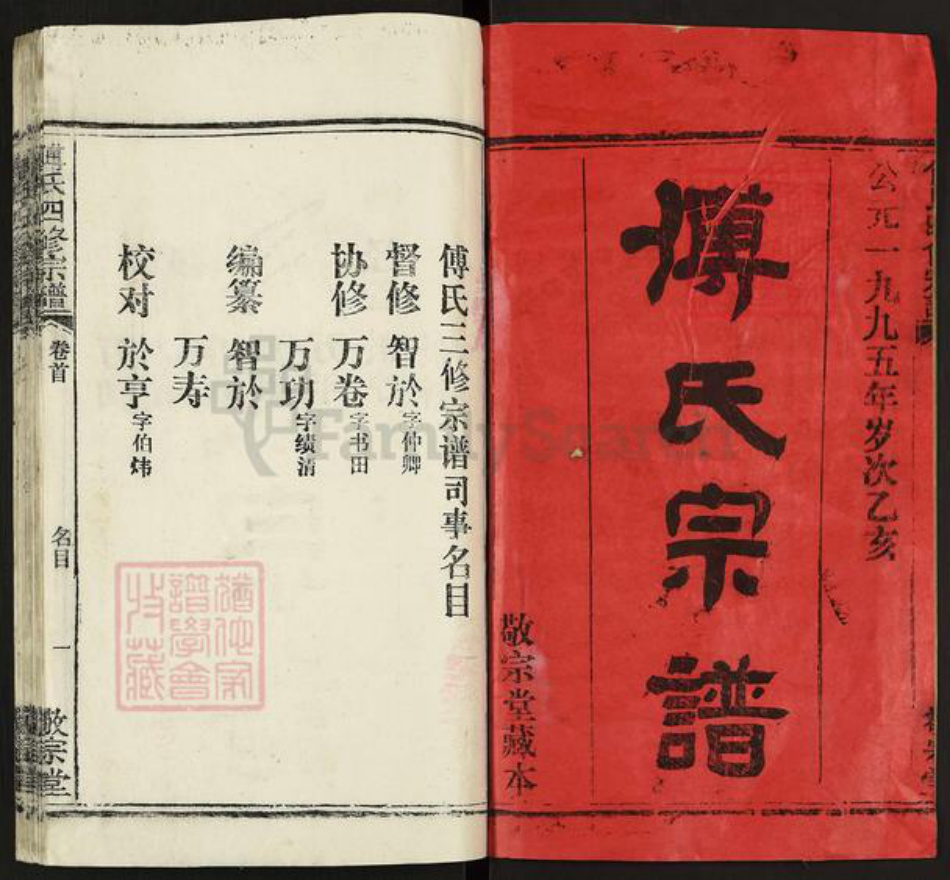 公元一九九五年岁次乙亥
傅氏宗譜
敬宗堂藏本
傅氏三修宗谱司事名目
督修 智於 字仲卿
协修 万卷 字书田
万功 字绩清
编纂 智於
万寿
校对 於亨 字伯炜
氏四修宗譜 卷首 名目 一 敬宗堂
FamilySearch